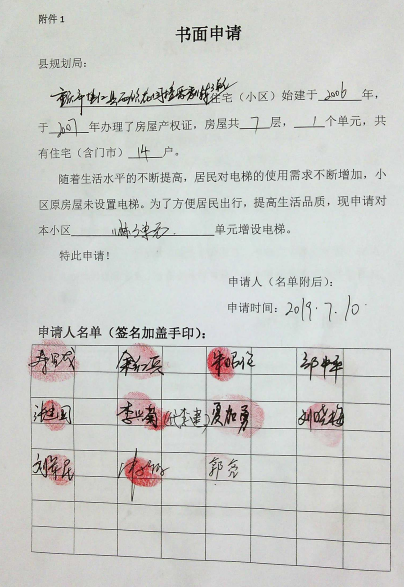 附件1
书面申请
县规划局：
住宅（小区）始建于2006年，
于2007年办理了房屋产权证，房屋共7层，1个单元，共
有住宅（含门市）14户。
随着生活水平的不断提高，居民对电梯的使用需求不断增加，小
区原房屋未设置电梯。为了方便居民出行，提高生活品质，现申请对
本小区 单元增设电梯。
特此申请！
申请人（名单附后）：
申请时间：2019.7.10.
申请人名单（签名加盖手印）：
夏加勇
郭亮